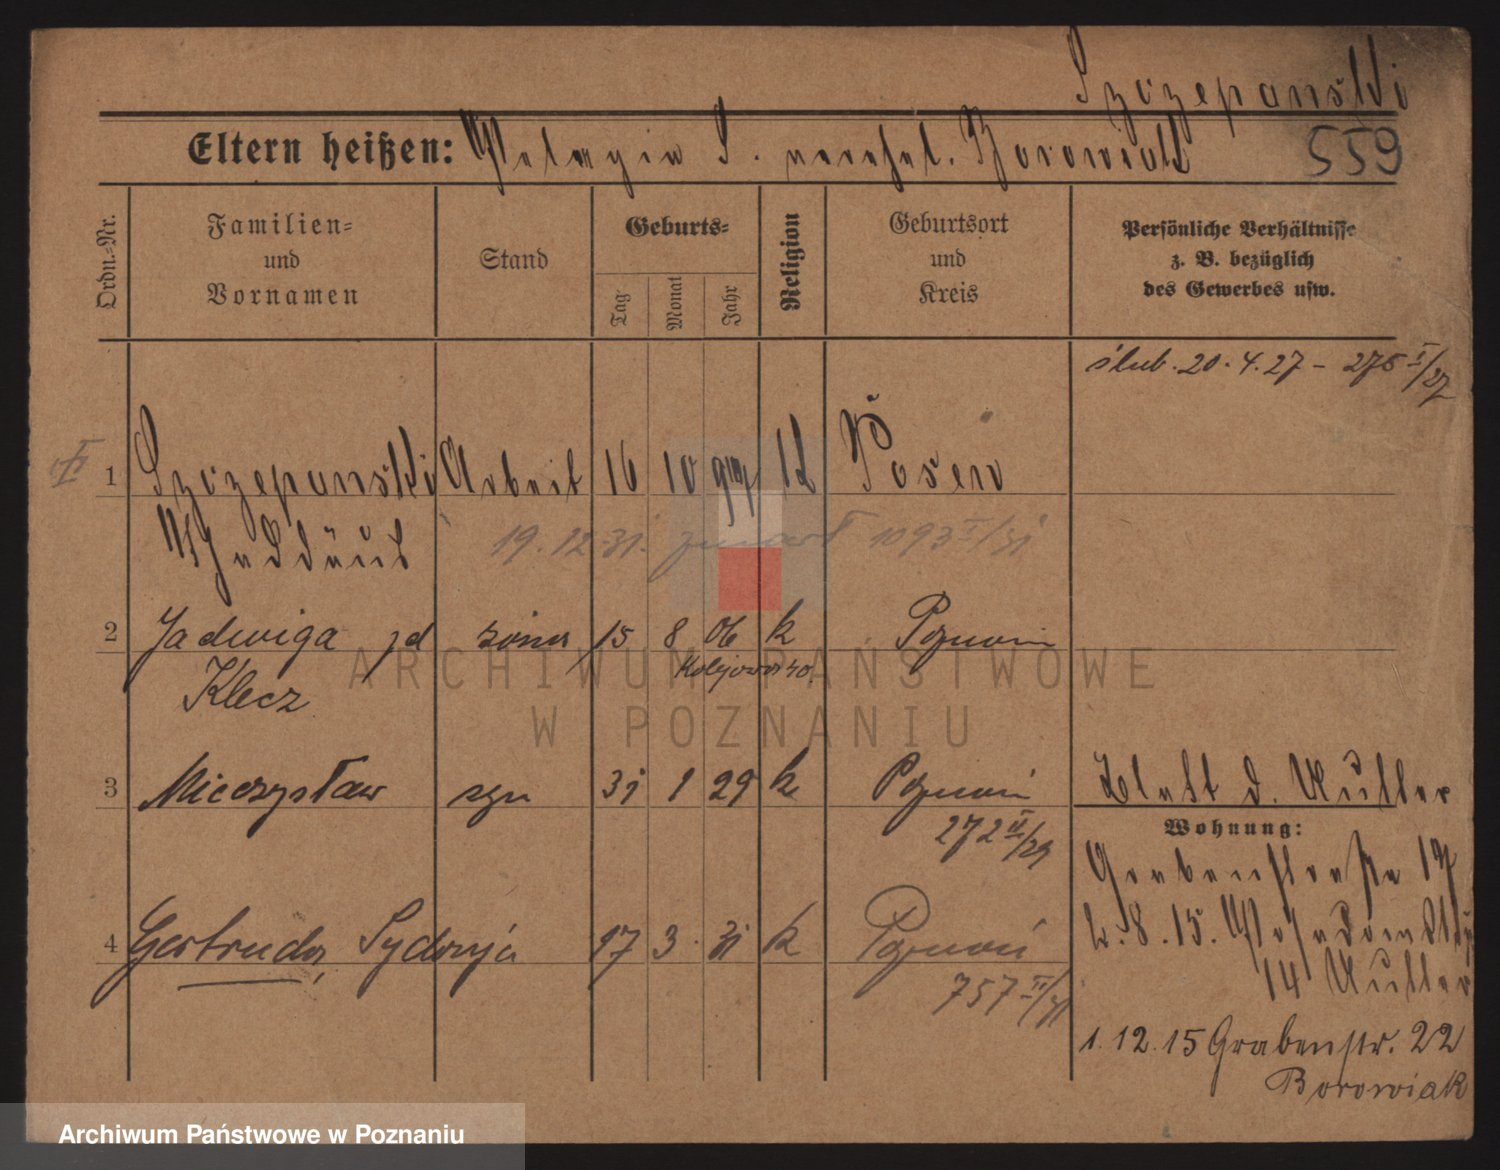 Szczepanski
559
Eltern heißen: Pelagia S. verehel. Borowiak
Ordn.-Nr.
Familien-
und
Vornamen
Stand
Geburts-
Tag
Monat
Jahr
Religion
Geburtsort
und
Kreis
Persönliche Verhältnisse
z. B. bezüglich
des Gewerbes usw.
ślub. 20.4.27 - 275 I/27
1 Szczepanski Arbeit 16 10 Posen
Thaddäus
19.12.31. zmarł 1093 I/31
2 Jadwiga zd żona 15 8 06 k Poznań
Klecz
3 Mieczysław syn 31 1 29 k Poznań
272 II/29
4 Gertruda, Sydonja 17 3. 31 k Poznań
757 II/31
bleibt d. Mutter
Wohnung:
Grabenstraße
14 Mutter
1.12.15 Grabenstr. 22
Borowiak
ARCHIWUM PAŃSTWOWE
W POZNANIU
Archiwum Państwowe w Poznaniu